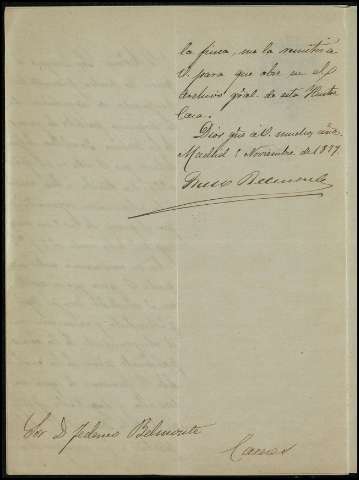 la finca, me la remitirá
V. para que obre en el
Archivo gral. de esta Ilustre
Casa.
Dios gũe á V. muchos años
Madrid Noviembre de 1877.
Sor. D. Federico Belmonte